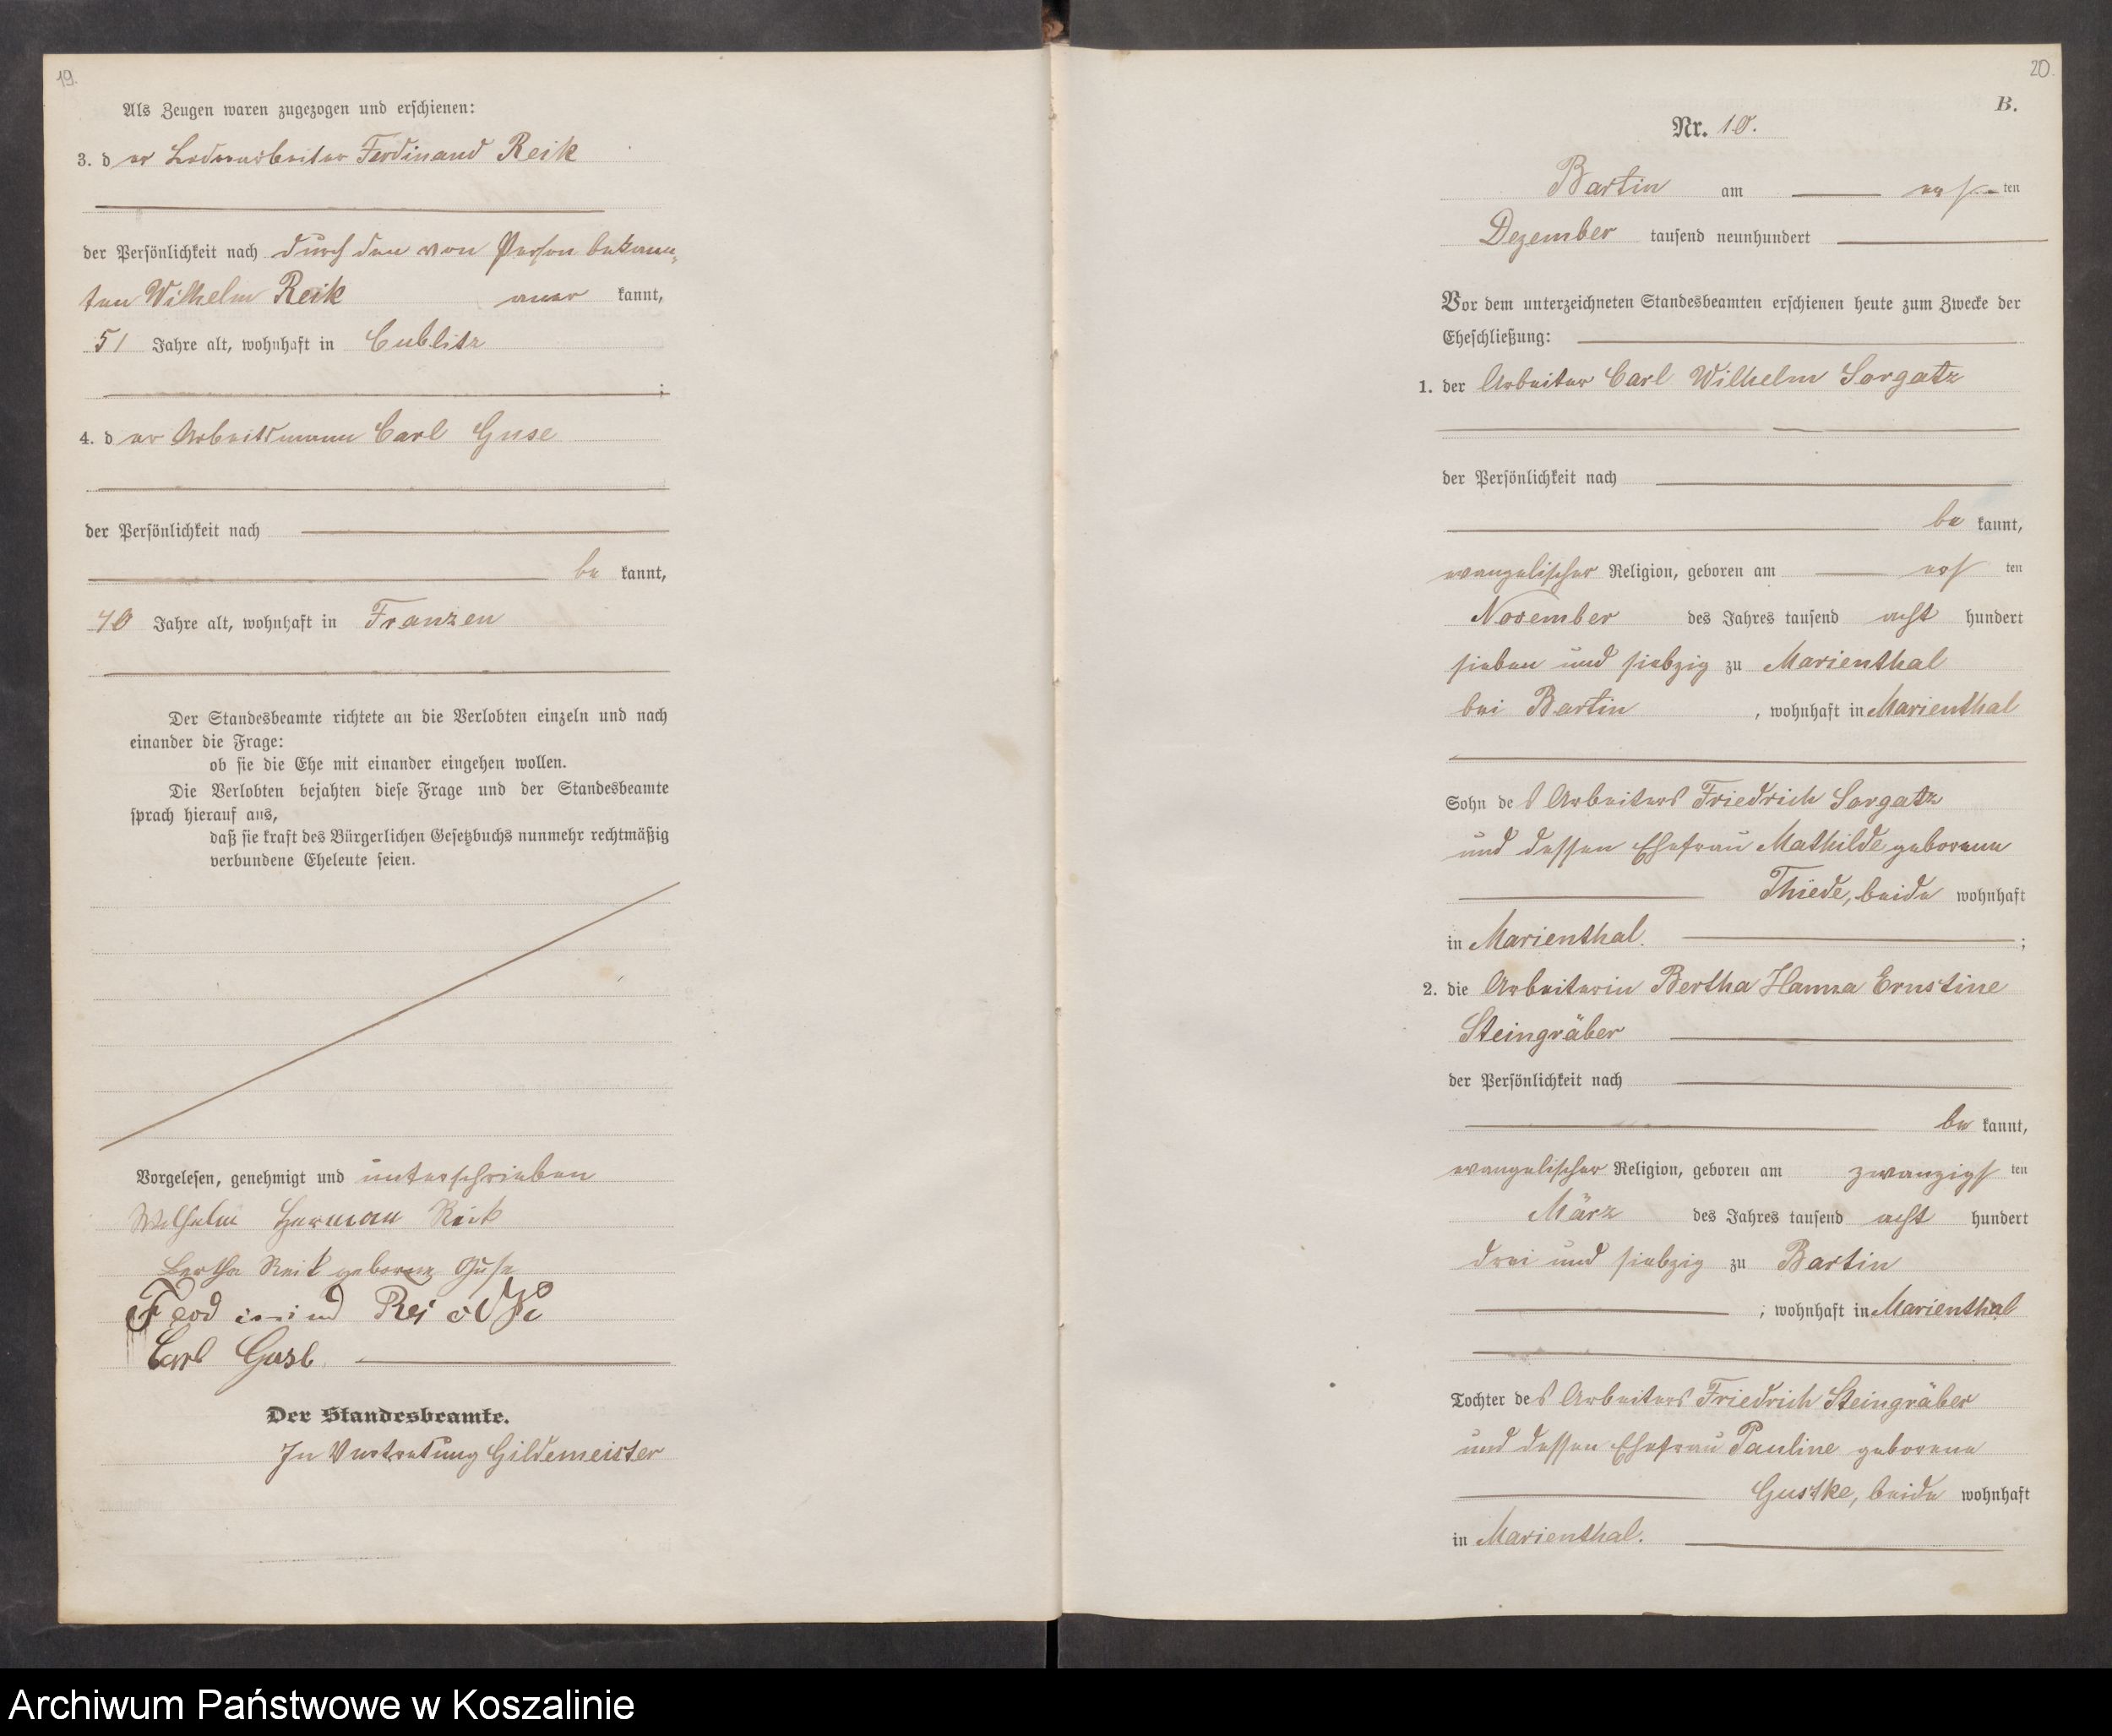 19.
Als Zeugen waren zugezogen und erschienen:
3. der Ferdinand Reik
der Persönlichkeit nach durch den von Person bekann-
ten Wilhelm Reik aner kannt,
51 Jahre alt, wohnhaft in Cublitz
;
4. der Arbeitsmann Carl Guse
der Persönlichkeit nach
be kannt,
40 Jahre alt, wohnhaft in Franzen
Der Standesbeamte richtete an die Verlobten einzeln und nach
einander die Frage:
ob sie die Ehe mit einander eingehen wollen.
Die Verlobten bejahten diese Frage und der Standesbeamte
sprach hierauf aus,
daß sie kraft des Bürgerlichen Gesetzbuchs nunmehr rechtmäßig
verbundene Eheleute seien.
Vorgelesen, genehmigt und unterschrieben
Wilhelm Herman Reik
Bertha Reik geborene Guse
Carl Guse
Der Standesbeamte.
In Vertretung Gildemeister
20.
B.
Nr. 10.
Bartin am ersten
Dezember tausend neunhundert
Vor dem unterzeichneten Standesbeamten erschienen heute zum Zwecke der
Eheschließung:
1. der Arbeiter Carl Wilhelm Sorgatz
der Persönlichkeit nach
be kannt,
evangelischer Religion, geboren am ersten
November des Jahres tausend acht hundert
sieben und siebzig zu Marienthal
bei Bartin , wohnhaft in Marienthal
Sohn des Arbeiters Friedrich Sorgatz
und dessen Ehefrau Mathilde geborene
Thiede, beide wohnhaft
in Marienthal. ;
2. die Arbeiterin Bertha Hanna Ernstine
Steingräber
der Persönlichkeit nach
be kannt,
evangelischer Religion, geboren am zwanzigsten
März des Jahres tausend acht hundert
drei und siebzig zu Bartin
, wohnhaft in Marienthal
Tochter des Arbeiters Friedrich Steingräber
und dessen Ehefrau Pauline geborene
Gustke, beide wohnhaft
in Marienthal.
Archiwum Państwowe w Koszalinie